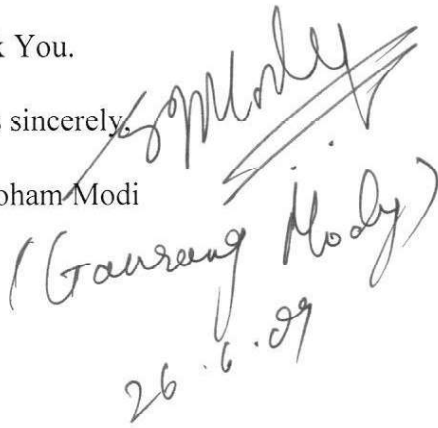 k You.
s sincerely,
oham Modi
(Gaurang Mody)
26.6.09